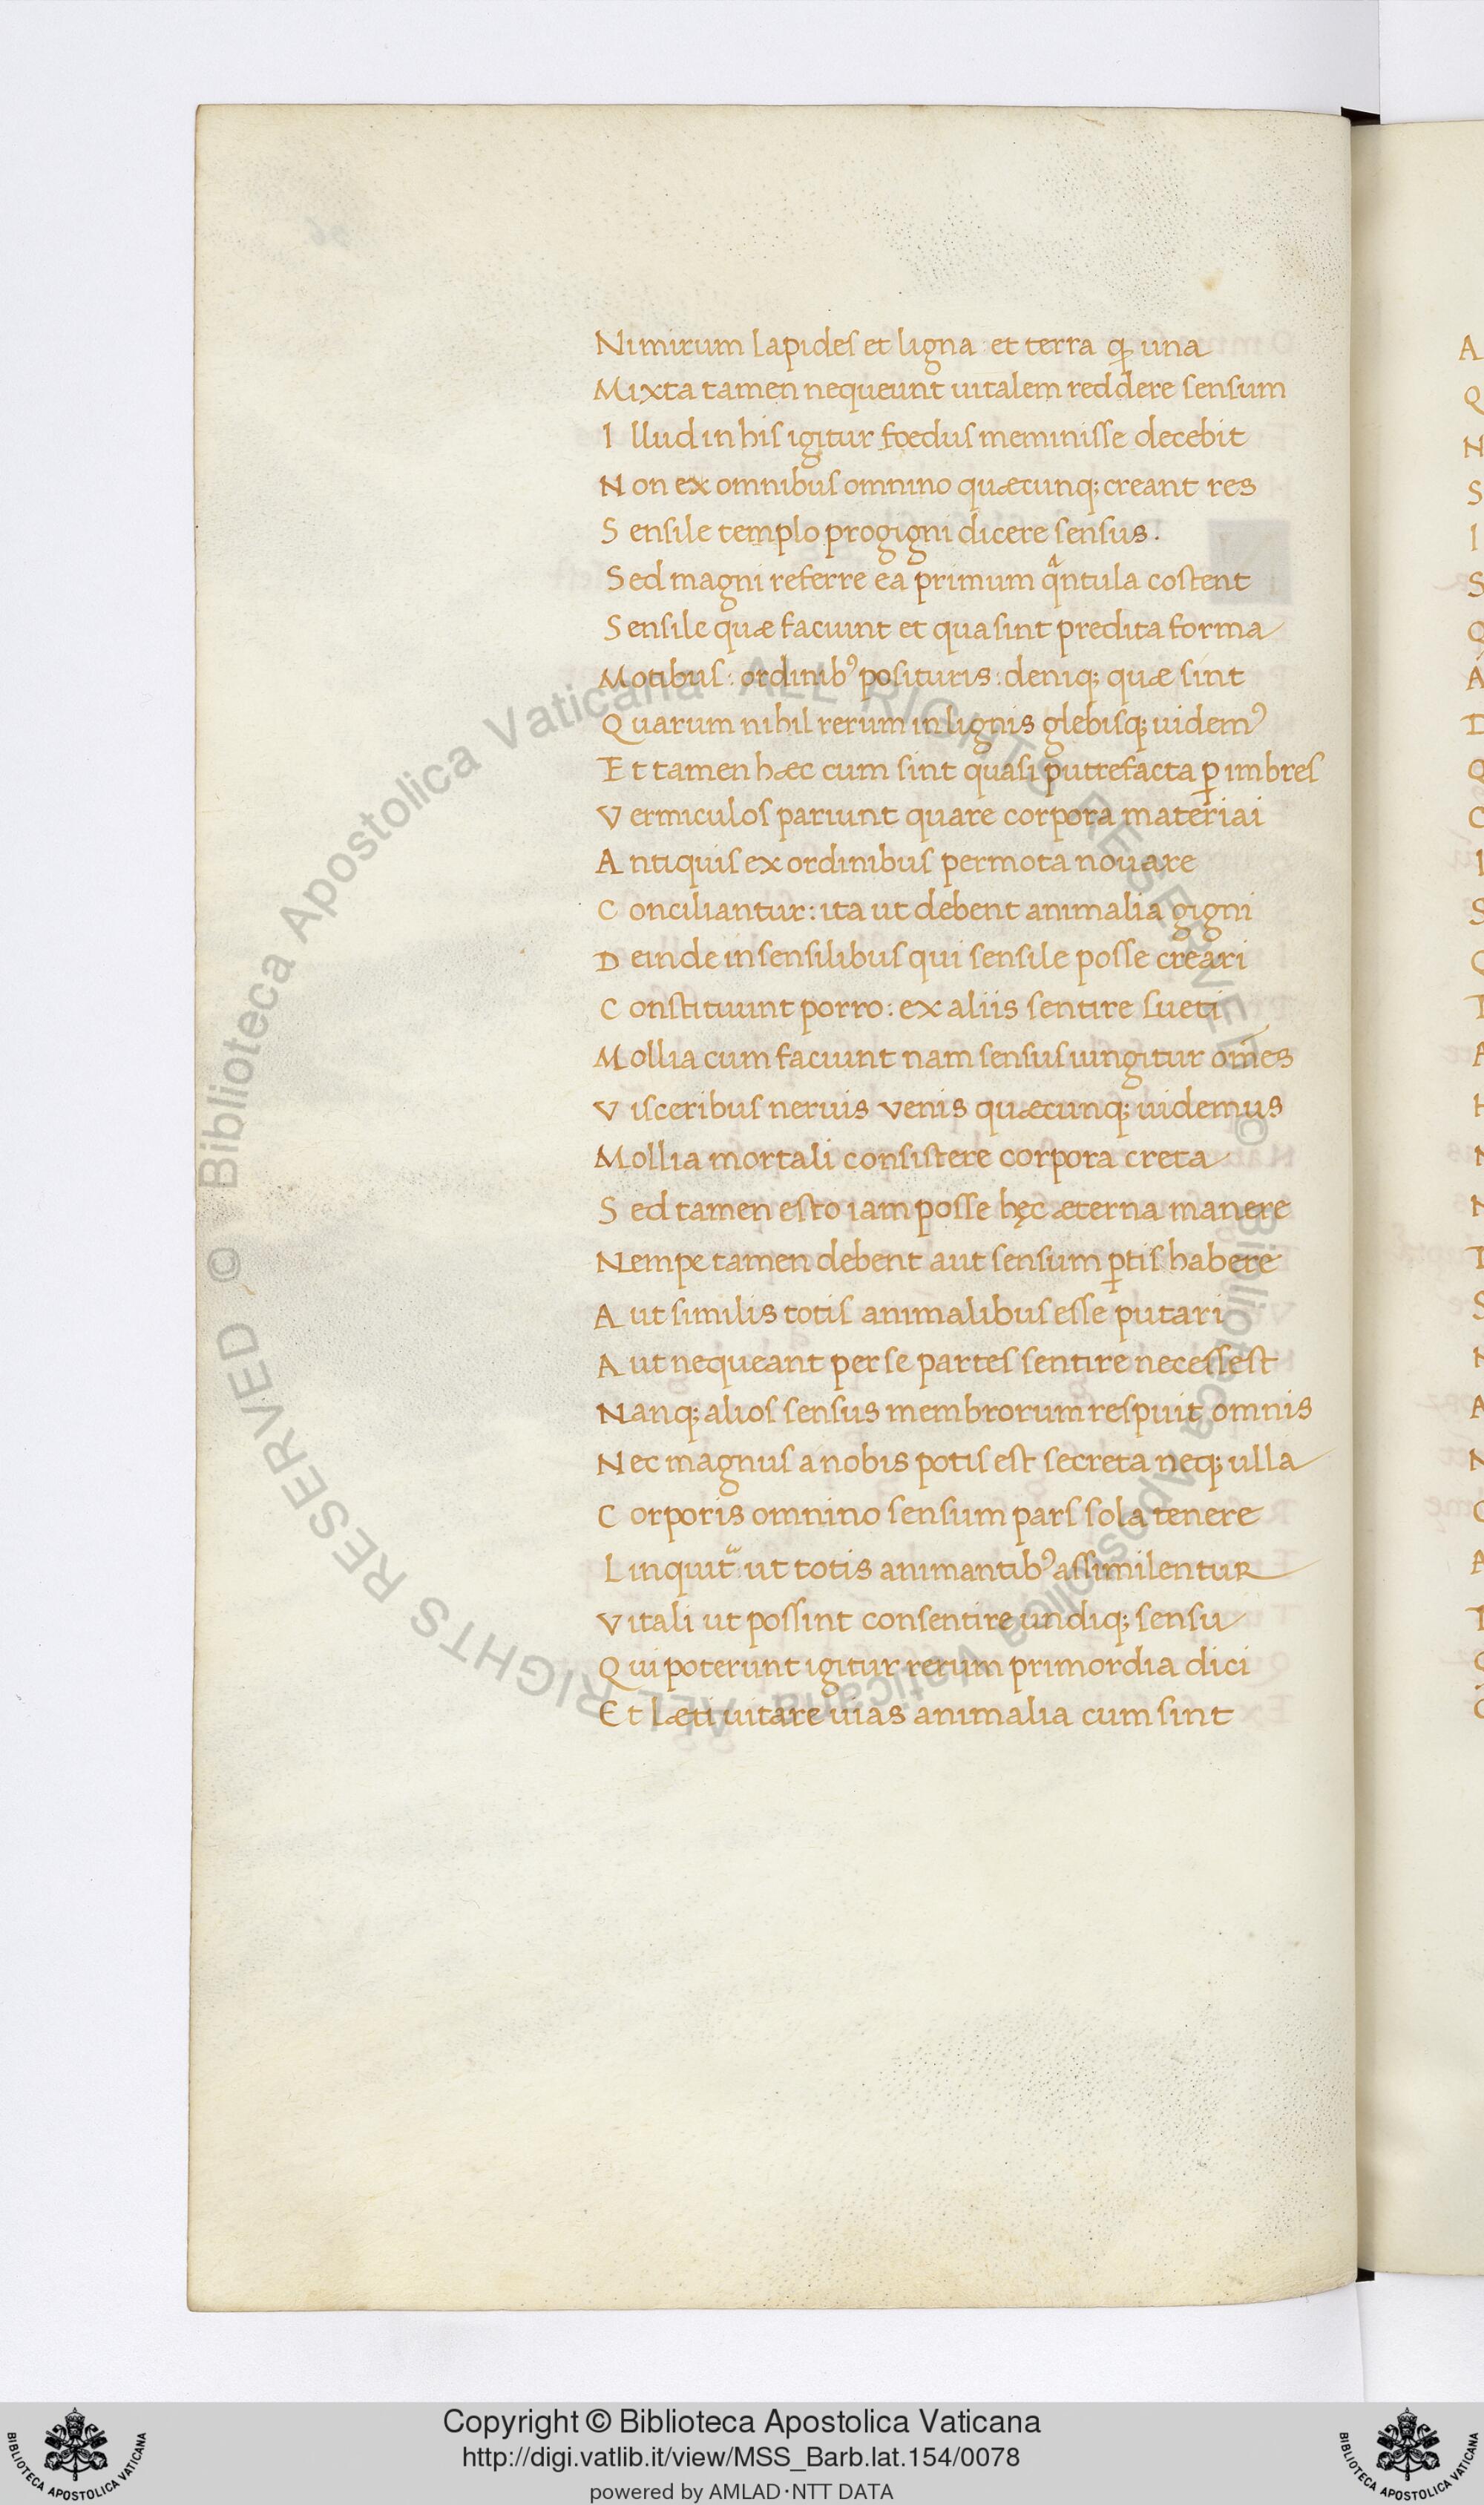 Nimirum lapides et ligna : et terra ꝙ una
Mixta tamen nequeunt uitalem reddere sensum
Illud in his igitur foedus meminisse decebit
Non ex omnibus omnino quæcunq; creant res
Sensile templo progigni dicere sensus.
Sed magni referre ea primum qᷓntula costent
Sensile quæ faciunt et qua sint predita forma
Motibus : ordinibꝰ posituris : deniq; quæ sint
Quarum nihil rerum in lignis glebisq; uidemꝰ
Et tamen hæc cum sint quasi putrefacta ꝑ imbres
Vermiculos pariunt quare corpora materiai
Antiquis ex ordinibus permota nouare
Conciliantur : ita ut debent animalia gigni
Deinde insensilibus qui sensile posse creari
Constituunt porro : ex aliis sentire sueti
Mollia cum faciunt nam sensus iungitur om̅es
Visceribus neruis venis quæcunq; uidemus
Mollia mortali consistere corpora creta
Sed tamen esto iam posse hęc æterna manere
Nempe tamen debent aut sensum ꝑtis habere
Aut similis totis animalibus esse putari
Aut nequeant per se partes sentire necessest
Nanq; alios sensus membrorum respuit omnis
Nec magnus a nobis potis est secreta neq; ulla
Corporis omnino sensum pars sola tenere
Linquit᷑ ut totis animantibꝰ assimilentur
Vitali ut possint consentire undiq; sensu
Qui poterunt igitur rerum primordia dici
Et læti uitare uias animalia cum sint
© Biblioteca Apostolica Vaticana ALL RIGHTS RESERVED
© Biblioteca Apostolica Vaticana ALL RIGHTS RESERVED
Copyright © Biblioteca Apostolica Vaticana
http://digi.vatlib.it/view/MSS_Barb.lat.154/0078
powered by AMLAD·NTT DATA
BIBLIOTECA APOSTOLICA VATICANA
BIBLIOTECA APOSTOLICA VATICANA